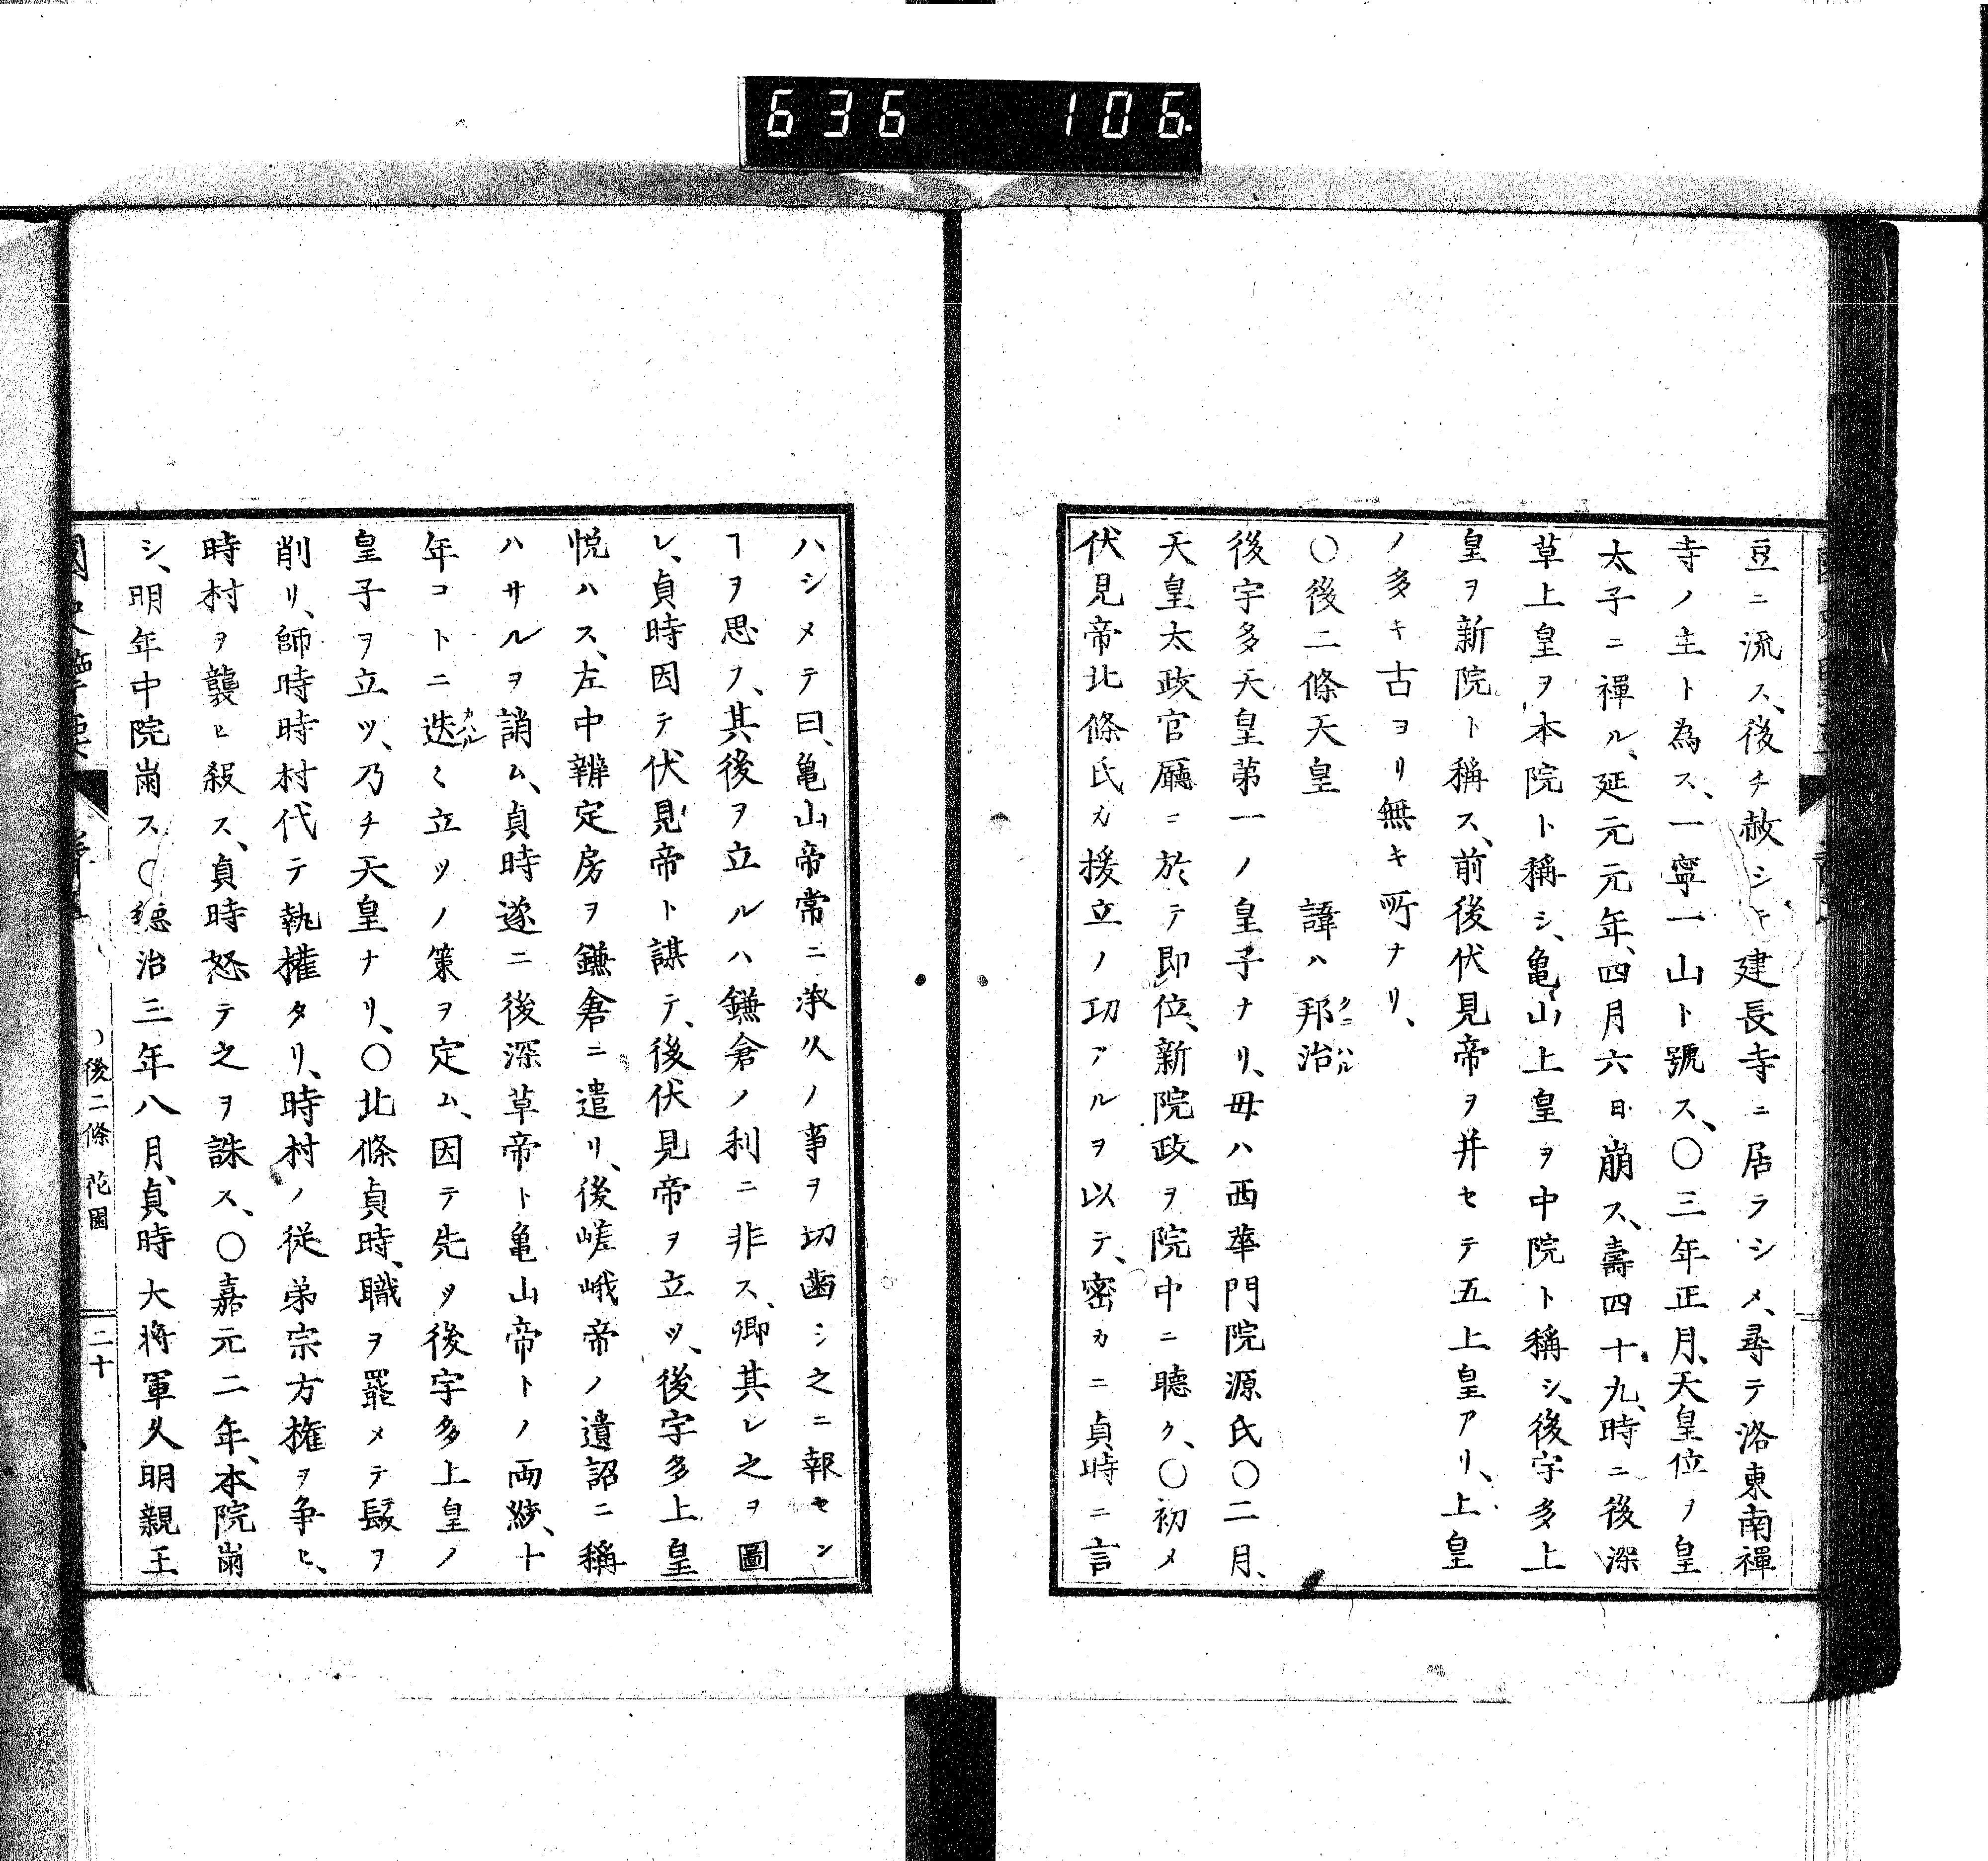 636 106
豆ニ流ス、後チ赦シテ建長寺ニ居ラシメ、尋テ洛東南禪
寺ノ主ト為ス、一寧一山ト號ス、〇三年正月、天皇位ヲ皇
太子ニ禪ル、延元元年、四月六日崩ス、壽四十九、時ニ後深
草上皇ヲ本院ト稱シ、亀山上皇ヲ中院ト稱シ、後宇多上
皇ヲ新院ト稱ス、前後伏見帝ヲ并セテ五上皇アリ、上皇
ノ多キ古ヨリ無キ所ナリ、
〇後二條天皇 諱ハ邦治クニハル
後宇多天皇第一ノ皇子ナリ、母ハ西華門院源氏〇二月、
天皇太政官廳ニ於テ即位、新院政ヲ院中ニ聽ク、〇初メ
伏見帝北條氏カ援立ノ功アルヲ以テ、密カニ貞時ニ言
ハシメテ曰、亀山帝常ニ承久ノ事ヲ切歯シ之ニ報セン
ヿヲ思フ、其後ヲ立ルハ鎌倉ノ利ニ非ス、卿其レ之ヲ圖
レ、貞時因テ伏見帝ト謀テ、後伏見帝ヲ立ツ、後宇多上皇
悦ハス、左中辨定房ヲ鎌倉ニ遣リ、後嵯峨帝ノ遺詔ニ稱
ハサルヲ誚ム、貞時遂ニ後深草帝ト亀山帝トノ両統、十
年コトニ迭カハルミ立ツノ策ヲ定ム、因テ先ツ後宇多上皇ノ
皇子ヲ立ツ、乃チ天皇ナリ、〇北條貞時、職ヲ罷メテ髮ヲ
削リ、師時時村代テ執權タリ、時村ノ従弟宗方権ヲ争ヒ、
時村ヲ襲ヒ殺ス、貞時怒テ之ヲ誅ス、〇嘉元二年、本院崩
シ、明年中院崩ス〇德治三年八月、貞時大将軍久明親王
後二條 花園
二十